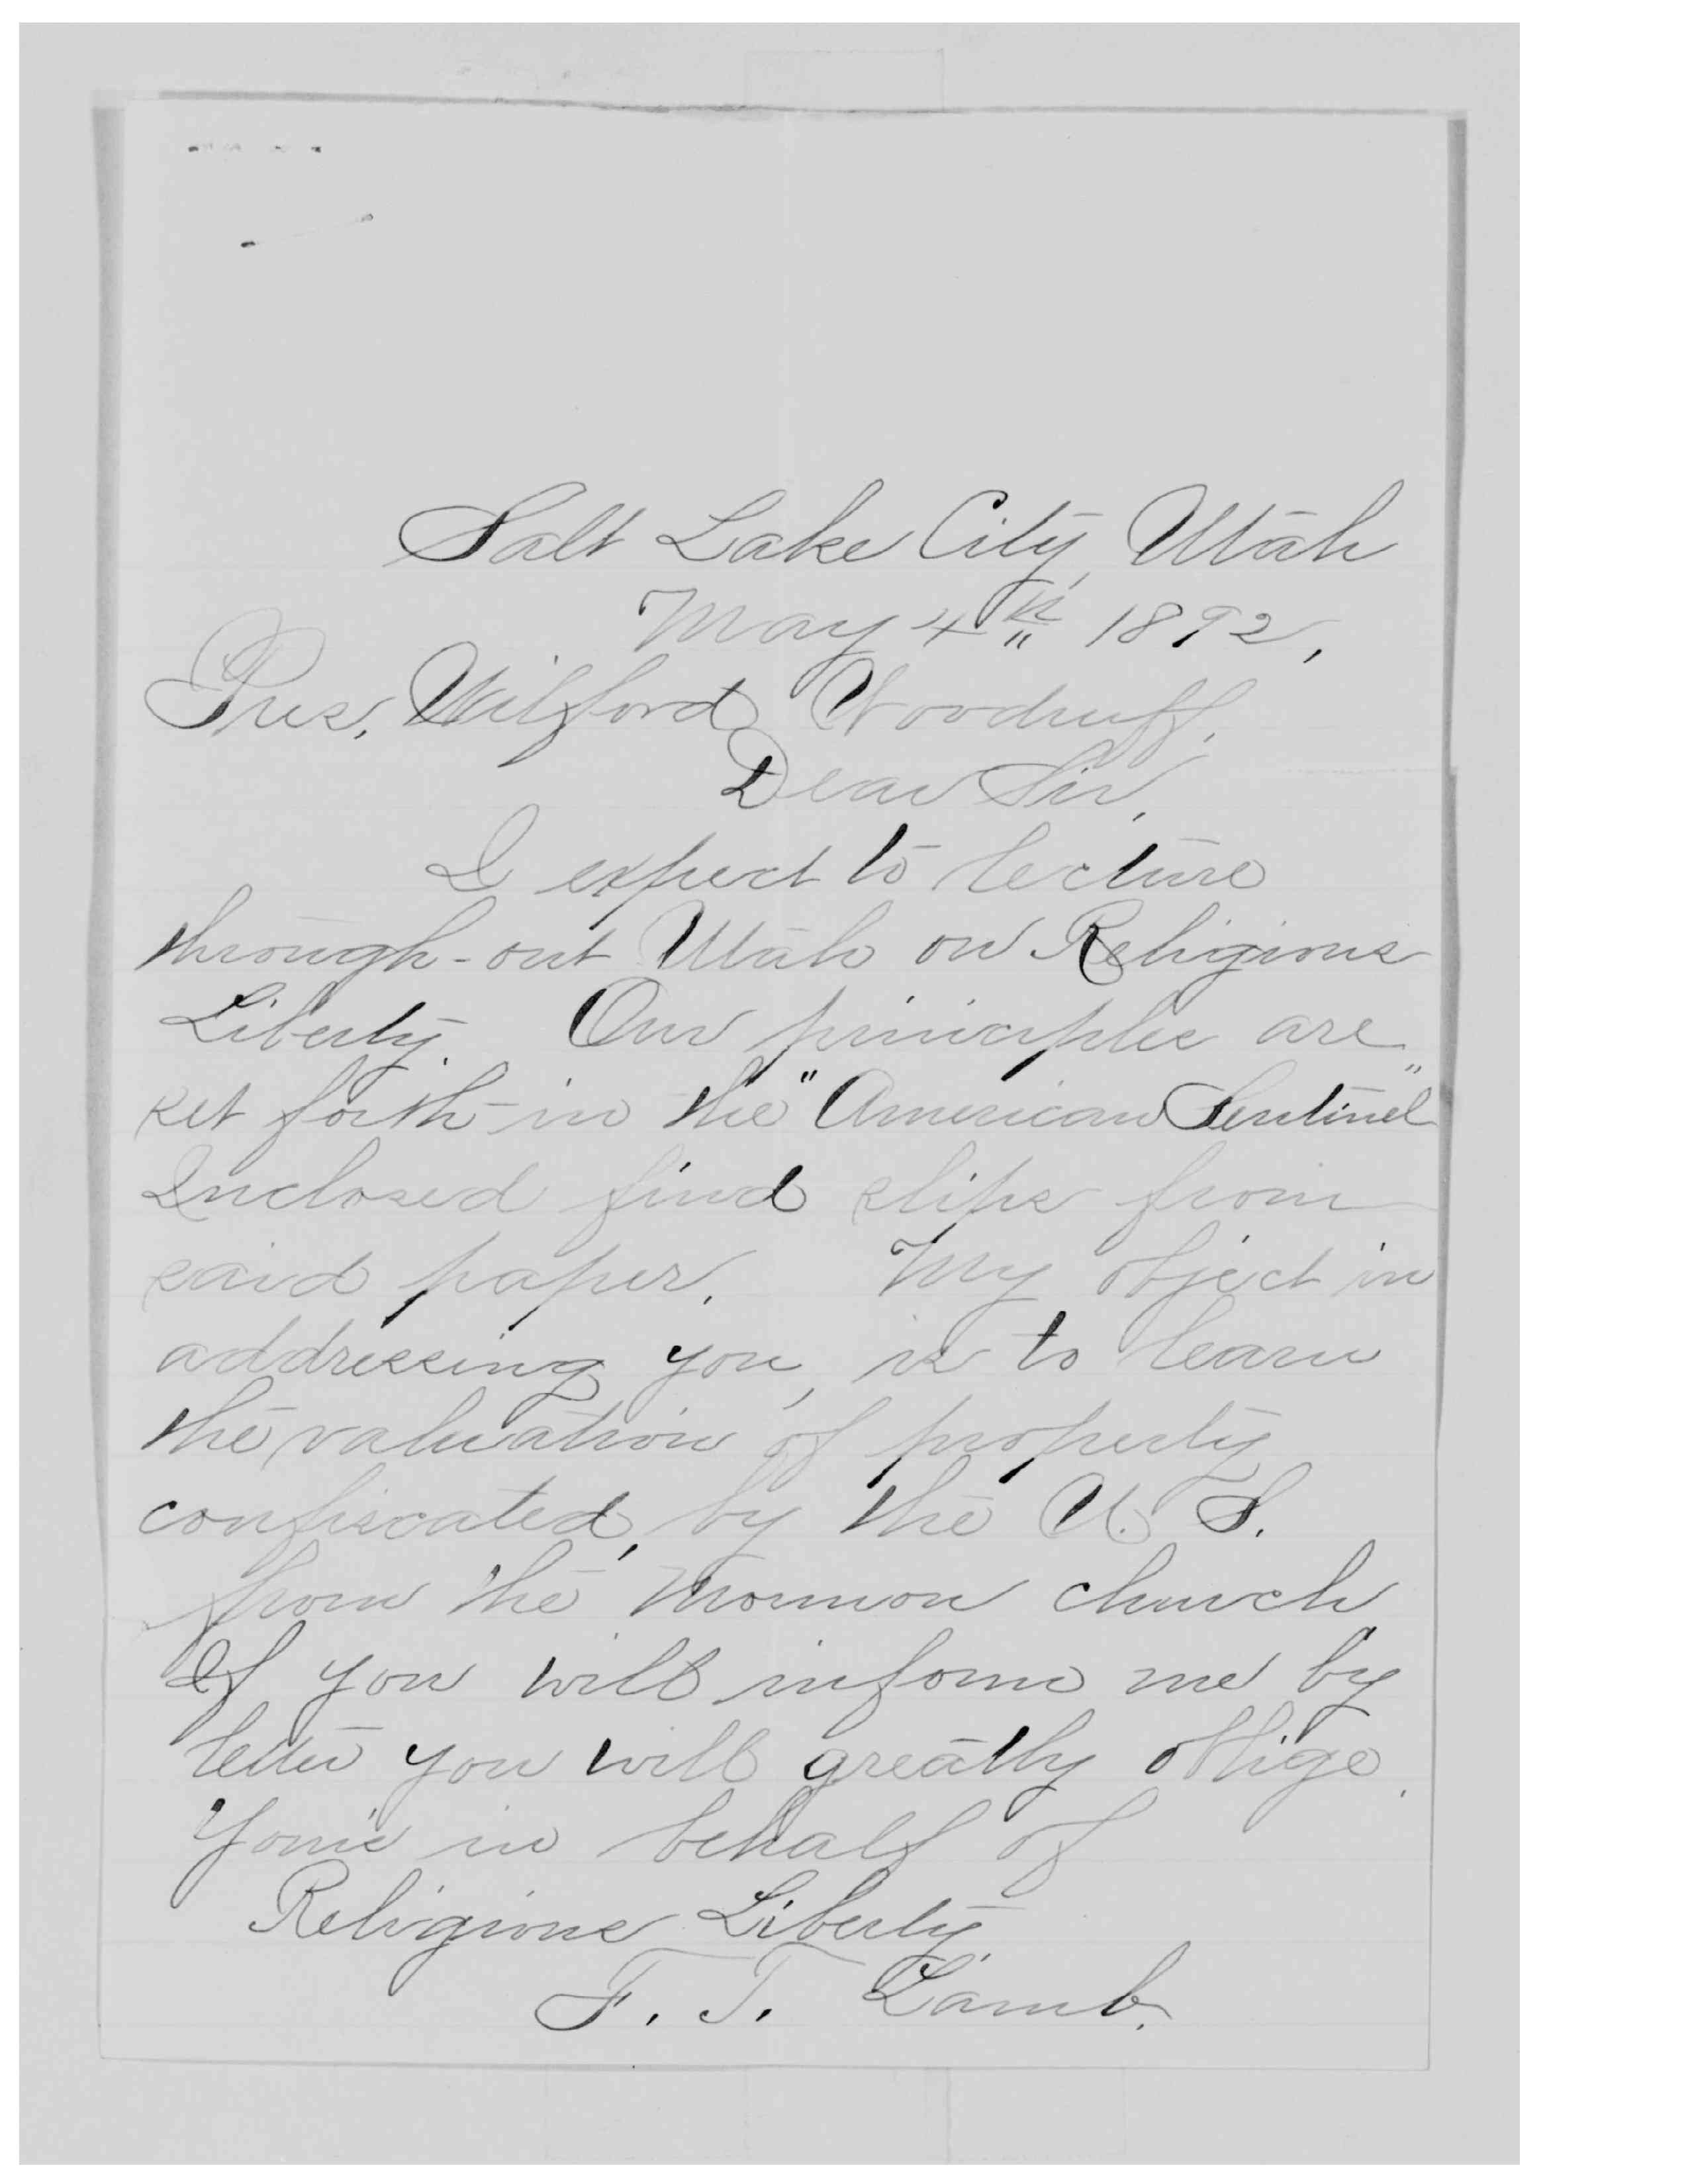 Salt Lake City, Utah
May 4th 1892,
Pres. Wilford Woodruff.
Dear Sir,
I expect to lecture
through-out Utah on Religious
Liberty. Our principles are
set forth in the "American Sentinel"
Inclosed find slips from
said paper. My object in
addressing you, is to learn
the valuation of property
confiscated, by the U. S.
from the Mormon church
If you will inform me by
letter you will greatly oblige.
Yours in behalf of
Religious Liberty.
F. T. Lamb.